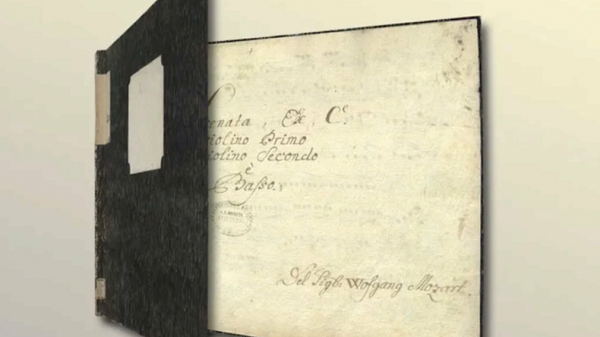 renata, Ex C.
iolino Primo
iolino Secondo
è
Basso.
Del Sigr: Wofgang Mozart